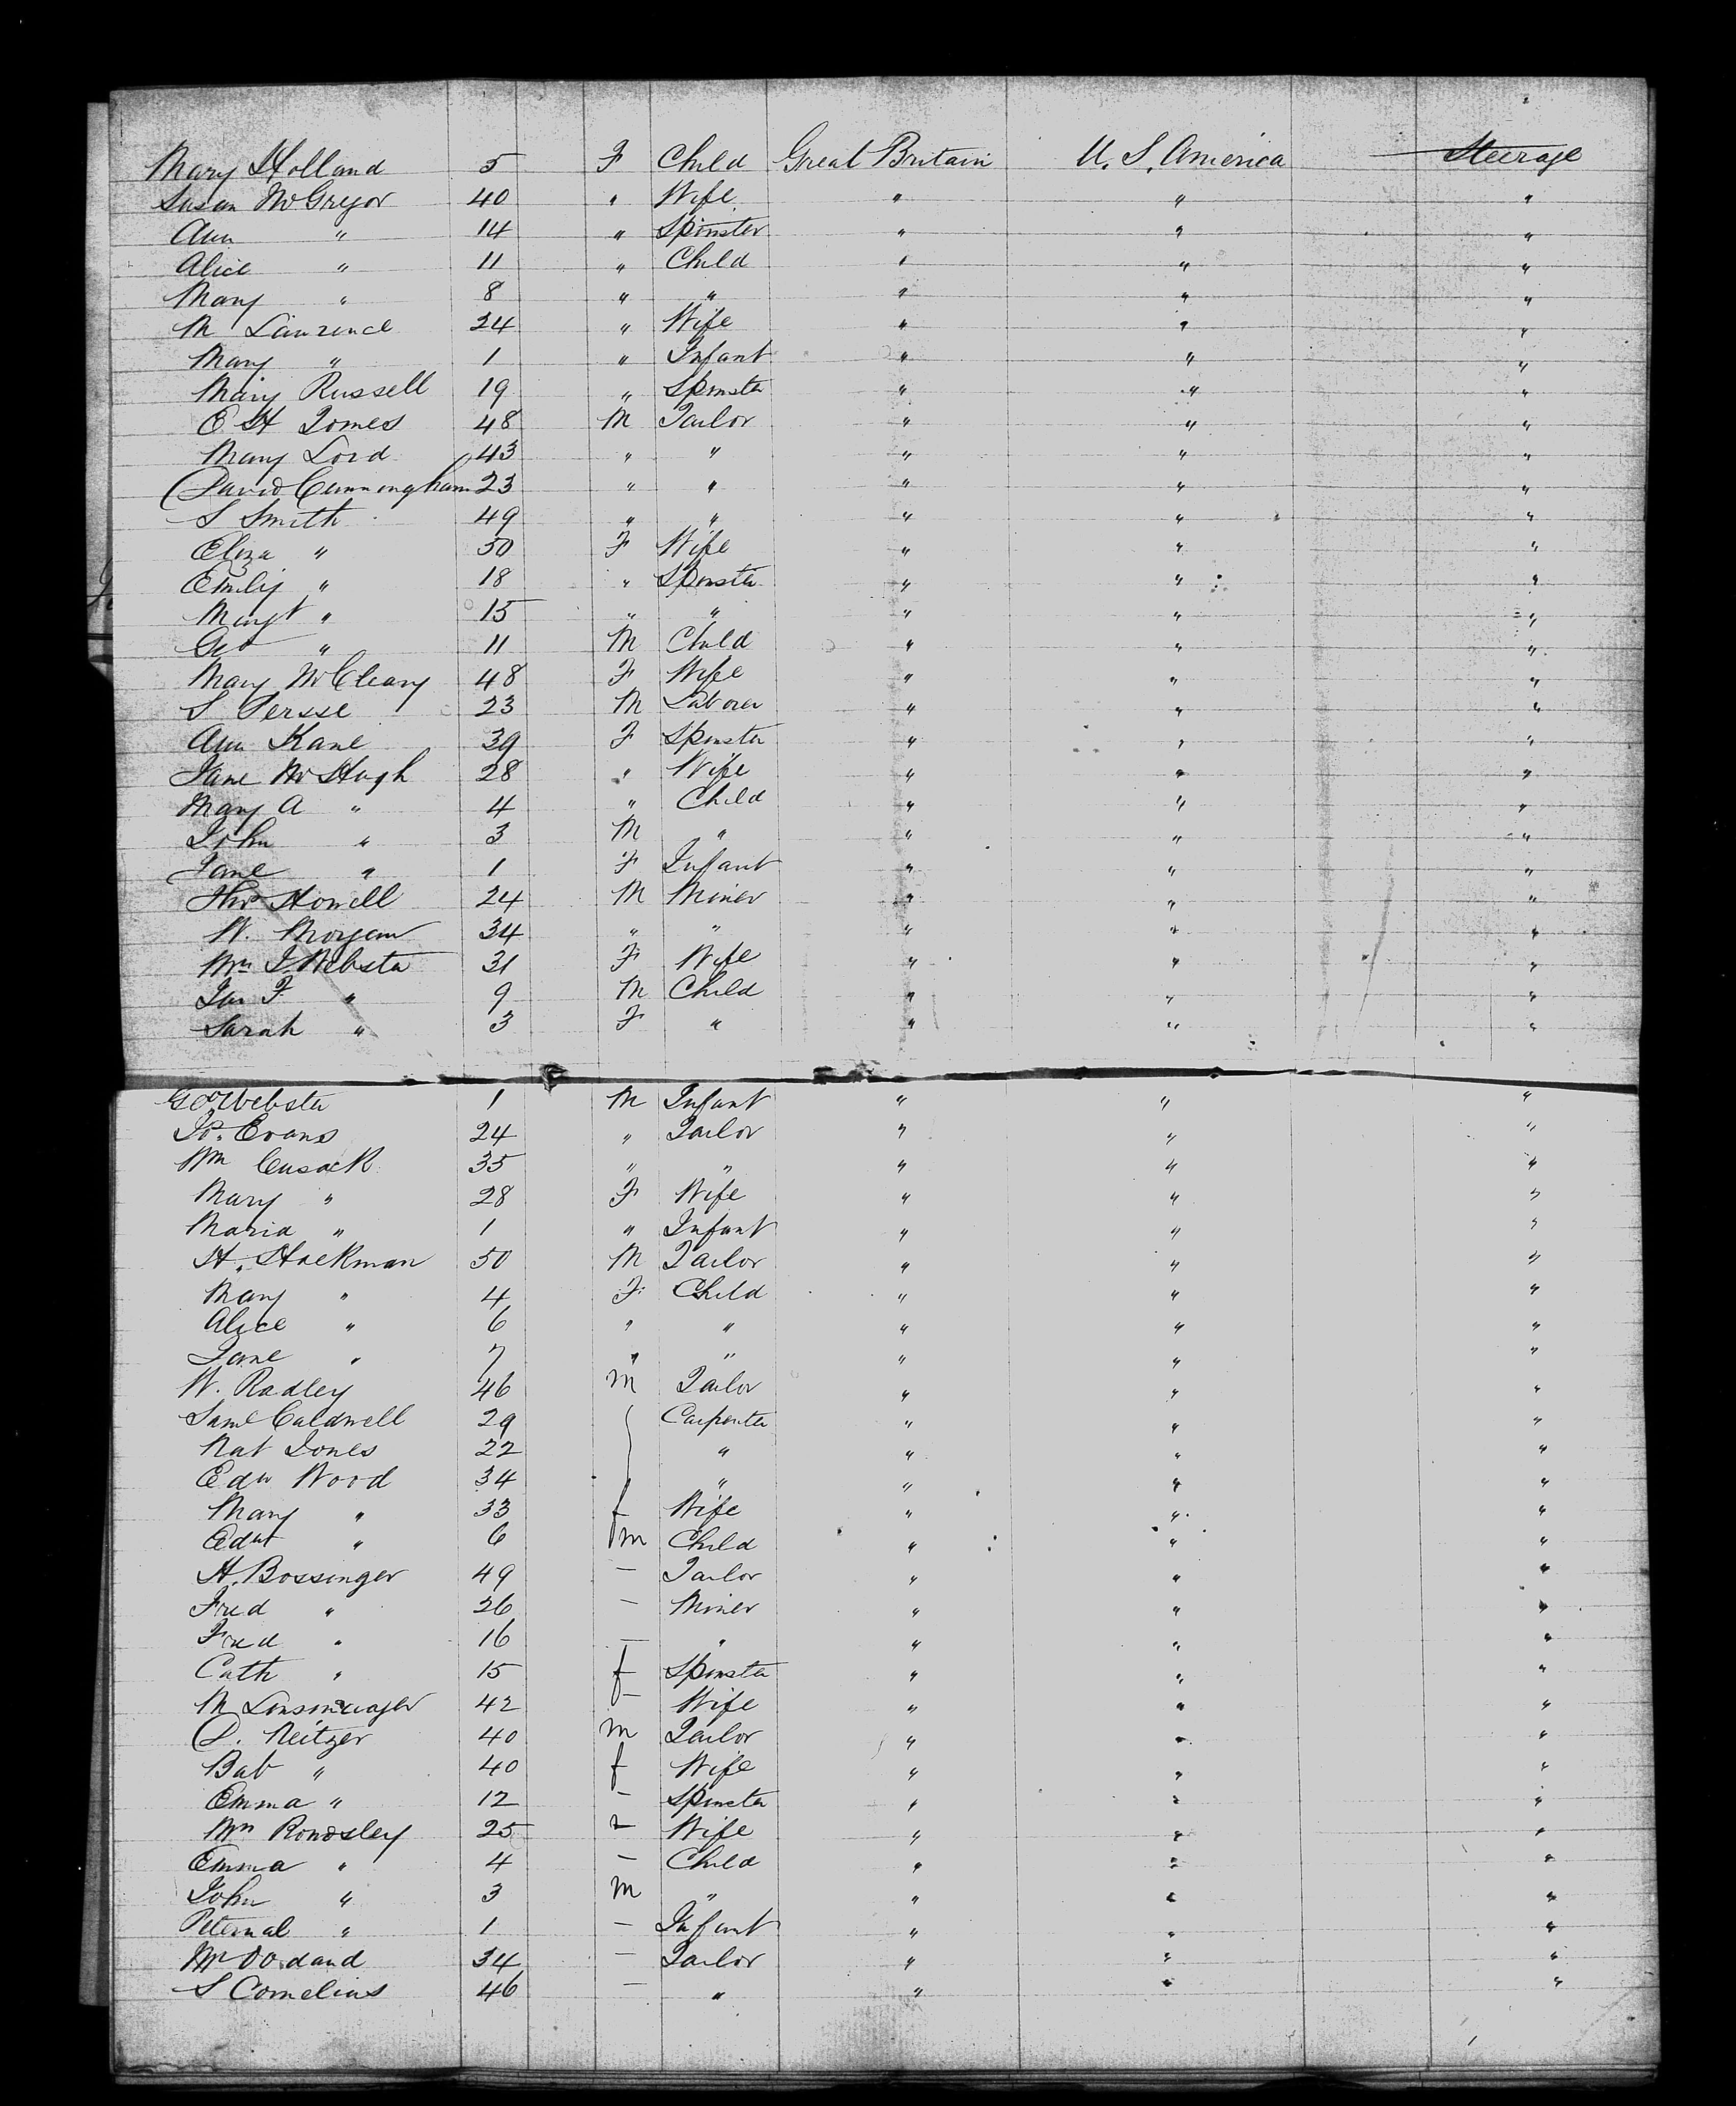 Mary Holland 5 F Child Great Britain U. S. America Steerage
Susan McGregor 40 " Wife " " "
Ann " 14 " Spinster " " "
Alice " 11 " Child " " "
Mary " 8 " " " " "
M Laurence 24 " Wife " " "
Mary " 1 " Infant " " "
Mary Russell 19 " Spinster " " "
E H Jomes 48 M Tailor " " "
Mary Lord 43 " " " " "
David Cunningham 23 " " " " "
S Smith 49 " " " " "
Eliza " 50 F Wife " " "
Emily " 18 " Spinster " " "
Margt " 15 " " " " "
Geo " 11 M Child " " "
Mary McCleary 48 F Wife " " "
S Persse 23 M Laborer " " "
Ann Kane 39 F Spinster " " "
Jane McHugh 28 " Wife " " "
Mary A " 4 " Child " " "
John " 3 M " " " "
Jane " 1 F Infant " " "
Thos Howell 24 M Miner " " "
W. Morgan 34 " " " " "
Mrs J. Webster 31 F Wife " " "
Jas F. " 9 M Child " " "
Sarah " 3 F " " " "
Geo Webster 1 M Infant " " "
Jos. Evans 24 " Tailor " " "
Wm Cusack 35 " " " " "
Mary " 28 F Wife " " "
Maria " 1 " Infant " " "
H. Stackman 50 M Tailor " " "
Mary " 4 F Child " " "
Alice " 6 " " " " "
Jane " 7 " " " " "
W. Radley 46 M Tailor " " "
Saml Caldwell 29 Carpenter " " "
Nat Jones 22 " " " "
Edw Wood 34 " " " "
Mary " 33 f Wife " " "
Edwd " 6 m Child " " "
H. Bossinger 49 — Tailor " " "
Fred " 26 — Miner " " "
Fred " 16 — " " " "
Cath " 15 f Spinster " " "
M 42 — Wife " " "
D. Neitzer 40 m Tailor " " "
Bab " 40 f Wife " " "
Emma " 12 — Spinster " " "
Mrs Rondsley 25 — Wife " " "
Emma " 4 — Child " " "
John " 3 m " " " "
Peternal " 1 — Infant " " "
34 — Tailor " " "
S Cornelius 46 — " " " "